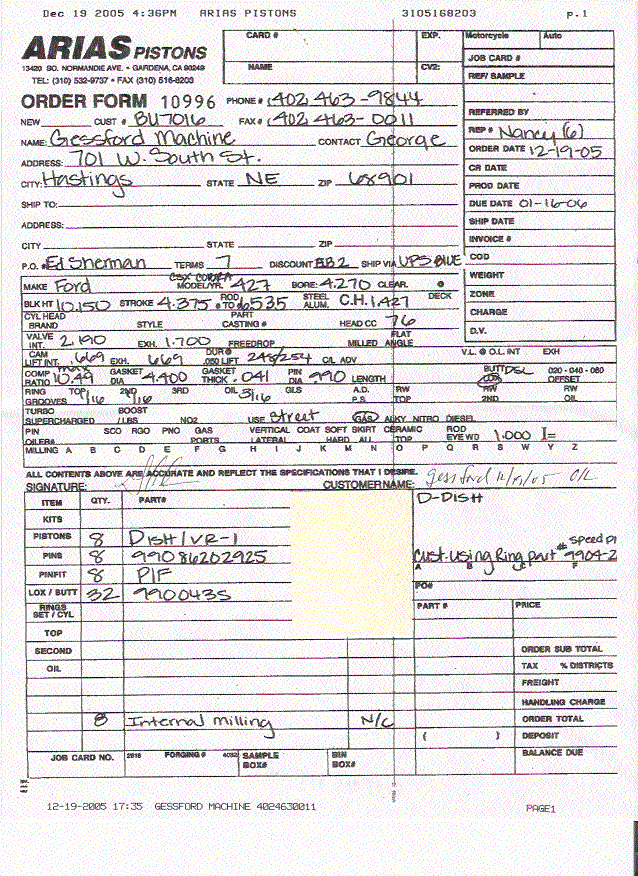 Dec 19 2005 4:36PM ARIAS PISTONS 3105168203 p.1
ARIAS PISTONS
13420 SO. NORMANDIE AVE. • GARDENA, CA 90249
TEL: (310) 532-9737 • FAX (310) 516-8203
CARD # EXP. Motorcycle Auto
NAME CV2: JOB CARD #
REF/ SAMPLE
ORDER FORM 10996 PHONE # (402 463-9844
REFERRED BY
NEW CUST # BU7016 FAX # (402 463-0011
REP # Nancy (6)
NAME: Gessford Machine CONTACT George
ORDER DATE 12-19-05
ADDRESS: 701 W. South St.
CR DATE
CITY: Hastings STATE NE ZIP 68901
PROD DATE
SHIP TO: DUE DATE 01-16-06
ADDRESS: SHIP DATE
INVOICE #
CITY STATE ZIP
COD
P.O. # Ed Sherman TERMS 7 DISCOUNT BB2 SHIP VIA UPS BLUE
WEIGHT
MAKE Ford CSX COBRA MODEL/YR. 427 BORE: 4.270 CLEAR. @
ZONE
BLK HT 10.150 STROKE 4.375 ROD 6.535 STEEL ALUM. C.H. 1.427 DECK
CHARGE
CYL HEAD BRAND STYLE PART CASTING # HEAD CC 76
D.V.
VALVE INT. 2.190 EXH. 1.700 FREEDROP MILLED FLAT ANGLE
V.L. @ O.L INT EXH
CAM LIFT INT. .669 EXH. 669 DUR@ .050 LIFT 248/254 C/L ADV
COMP RATIO max 10.49 GASKET DIA 4.400 GASKET THICK. .041 PIN DIA .990 LENGTH
BUTT DSL 020 - 040 - 060 OFFSET
RING GROOVES TOP 1/16 2ND 1/16 3RD OIL 3/16 GLS A.D. P.S. RW TOP RW 2ND RW OIL
TURBO SUPERCHARGED BOOST /LBS NO2 USE Street GAS ALKY NITRO DIESEL
PIN OILER# SCO RGO PNO GAS PORTS VERTICAL LATERAL COAT SOFT SKIRT CERAMIC HARD ALL TOP ROD EYE WD 1.000 I=
MILLING A B C E F G H I J K M N O P Q R S W Y Z
ALL CONTENTS ABOVE ARE ACCURATE AND REFLECT THE SPECIFICATIONS THAT I DESIRE.
SIGNATURE: CUSTOMER NAME: gessford
ITEM QTY. PART# D-DISH
KITS
PISTONS 8 Dish/VR-1
PINS 8 99086202925 Cust. using Ring part # speed pr 9904-2
PINFIT 8 P/F A B C F
LOX / BUTT 32 990043S PO#
RINGS SET / CYL PART # PRICE
TOP
SECOND ORDER SUB TOTAL
OIL TAX % DISTRICTS
FREIGHT
HANDLING CHARGE
8 Internal milling N/C ORDER TOTAL
( ) DEPOSIT
JOB CARD NO. 2618 FORGING # 4032 SAMPLE BOX# BIN BOX# BALANCE DUE
12-19-2005 17:35 GESSFORD MACHINE 4024630011 PAGE1